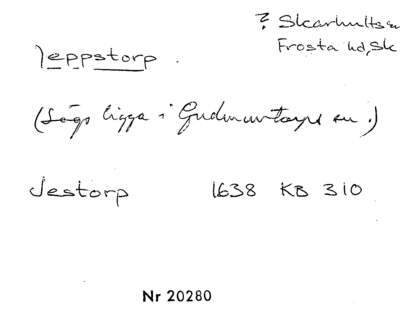 ? Skarhults sn
Frosta hd, Sk
Jeppstorp.
(Sägs ligga i Gudmuntorps sn.)
Jestorp 1638 KB 310
Nr 20280